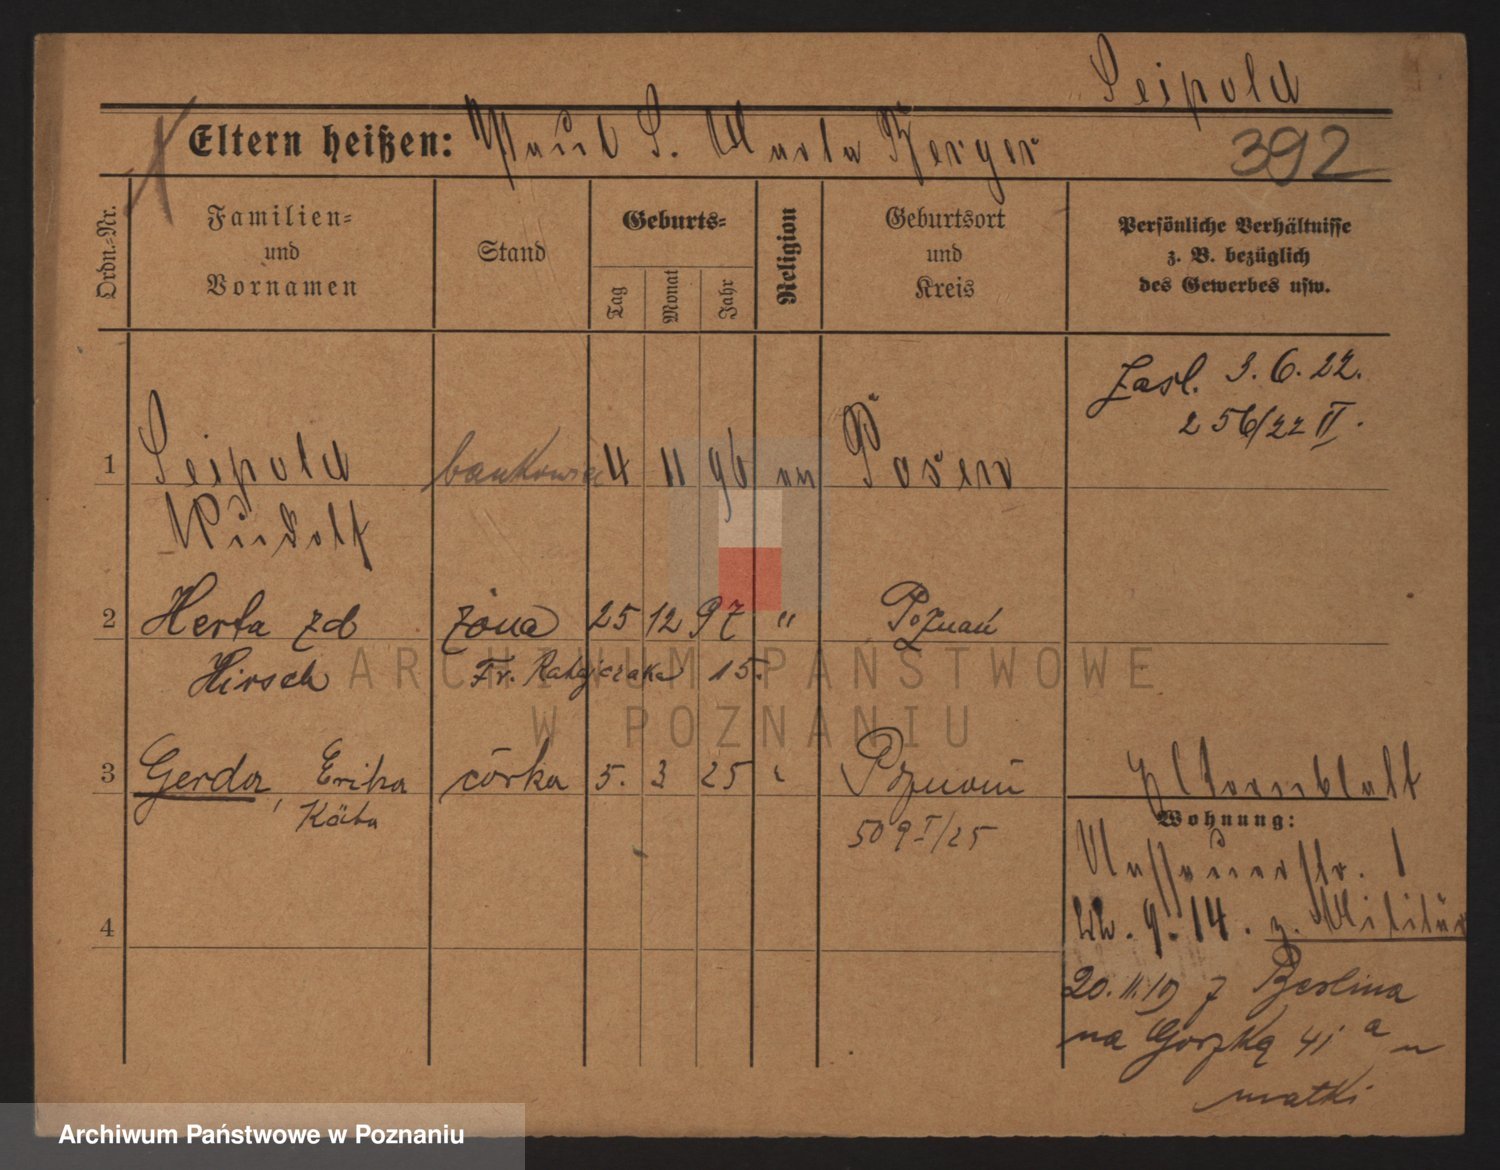 Leipold
Eltern heißen: Paul L. Marta Berger
392
Ordn.-Nr.
Familien-
und
Vornamen
Stand
Geburts-
Tag
Monat
Jahr
Religion
Geburtsort
und
Kreis
Persönliche Verhältnisse
z. B. bezüglich
des Gewerbes usw.
Zasl. 3. 6. 22.
256/22 II.
1 Leipold bankowiec 4 11 96 Posen
Rudolf
2 Herta zd żona 25 12 97 " Poznań
Hirsch Fr. Ratajczaka 15.
3 Gerda, Erika córka 5. 3 25 " Poznań
Käta
509 I/25
Elternblatt
Wohnung:
4
9. 14. z. Militär
20. 11. 19 z Berlina
na Gorzką 41 a u
matki
ARCHIWUM PAŃSTWOWE
W POZNANIU
Archiwum Państwowe w Poznaniu